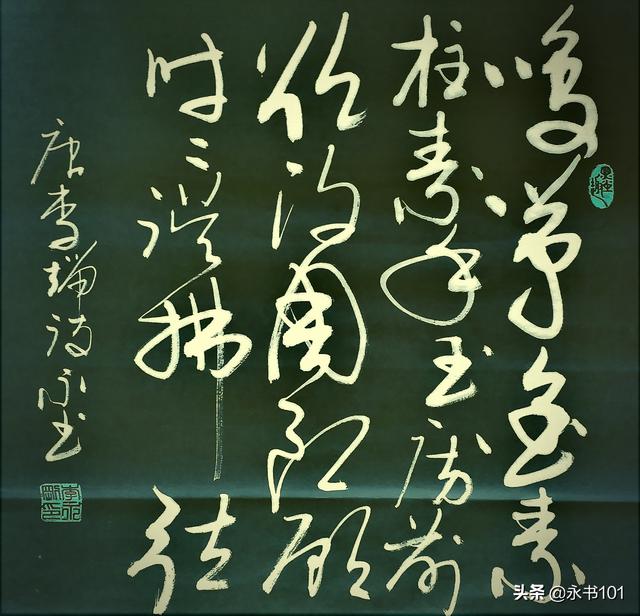 鸣筝金粟
柱素手玉房前
欲得周郎顾
时々误拂弦
唐李端诗永书
头条 @永书101